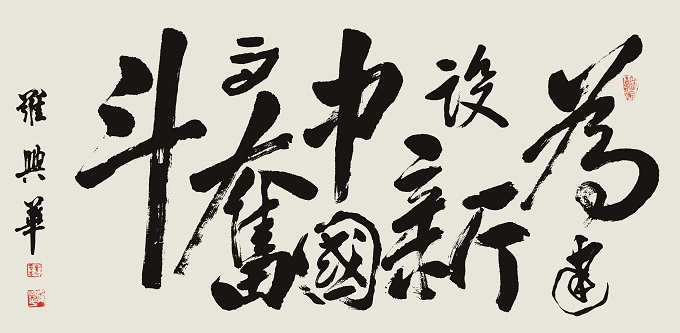 為建
设新
中國
而奮
斗
興華